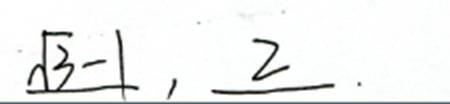 √3-1, 2.